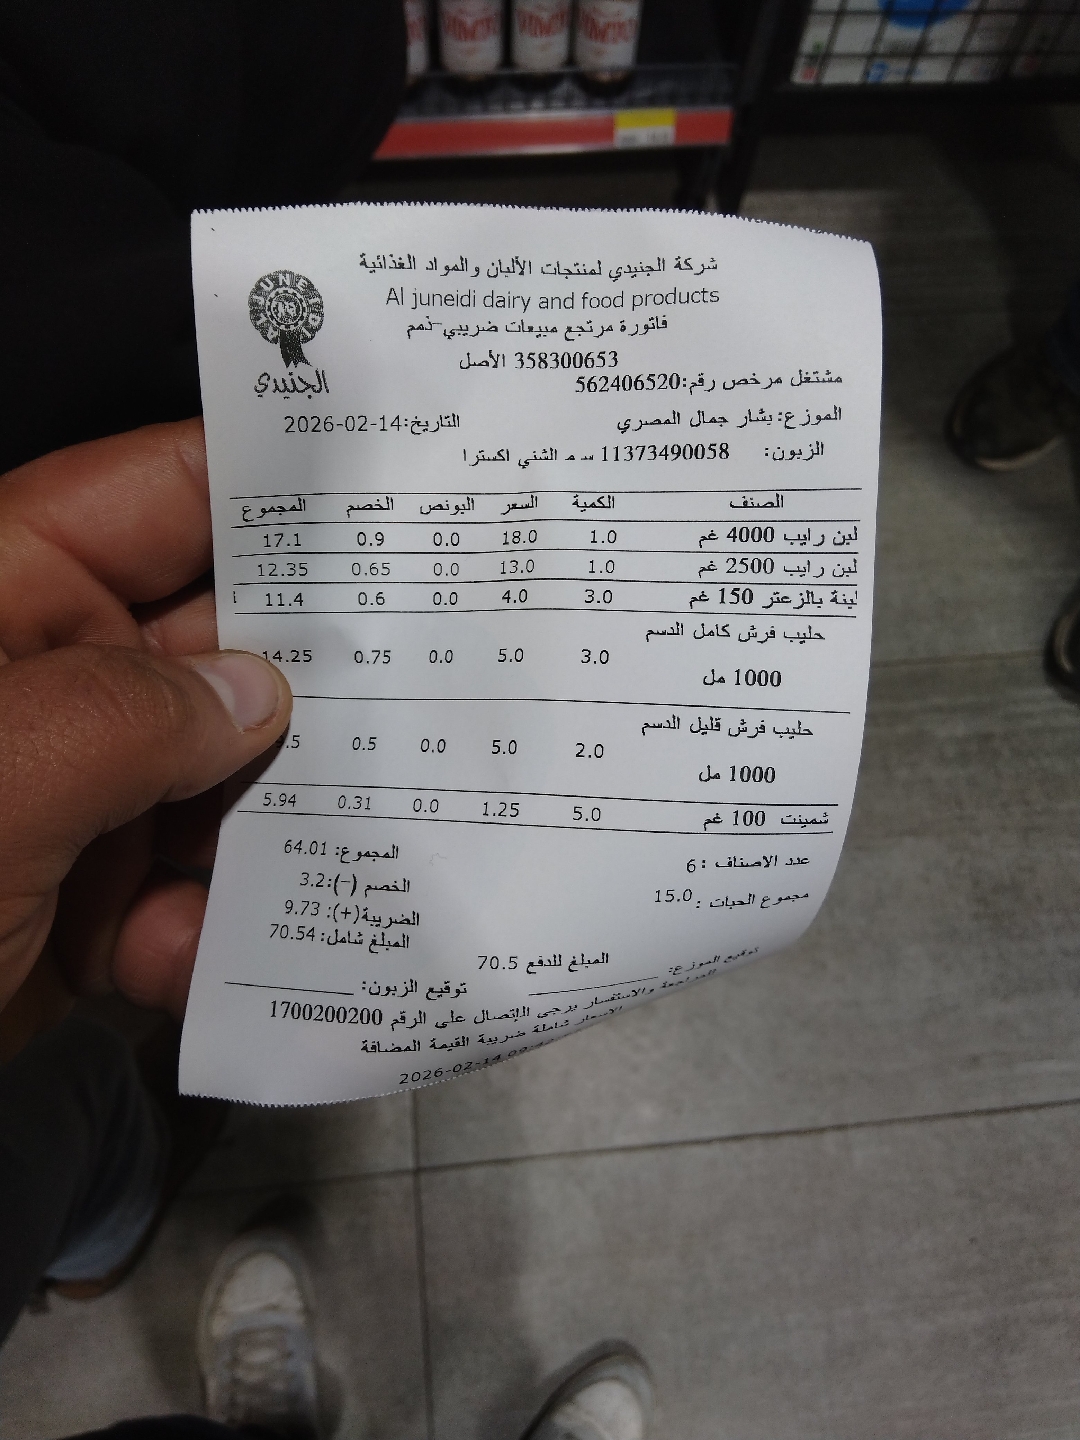 شركة الجنيدي لمنتجات الألبان والمواد الغذائية
Al juneidi dairy and food products
فاتورة مرتجع مبيعات ضريبي-ذمم
358300653 الأصل
مشتغل مرخص رقم:562406520
الجنيدي
الموزع: بشار جمال المصري التاريخ:2026-02-14
الزبون: 11373490058 س م الشني اكسترا
الصنف الكمية السعر البونص الخصم المجموع
لبن رايب 4000 غم 1.0 18.0 0.0 0.9 17.1
لبن رايب 2500 غم 1.0 13.0 0.0 0.65 12.35
لبنة بالزعتر 150 غم 3.0 4.0 0.0 0.6 11.4
حليب فرش كامل الدسم
1000 مل 3.0 5.0 0.0 0.75 14.25
حليب فرش قليل الدسم
1000 مل 2.0 5.0 0.0 0.5
شمينت 100 غم 5.0 1.25 0.0 0.31 5.94
عدد الاصناف :6 المجموع: 64.01
مجموع الحبات : 15.0 الخصم (-):3.2
الضريبة(+): 9.73
المبلغ شامل: 70.54
المبلغ للدفع 70.5
توقيع الموزع: توقيع الزبون:
للمراجعة والاستفسار يرجى الاتصال على الرقم 1700200200
الاسعار شاملة ضريبة القيمة المضافة
2026-02-14